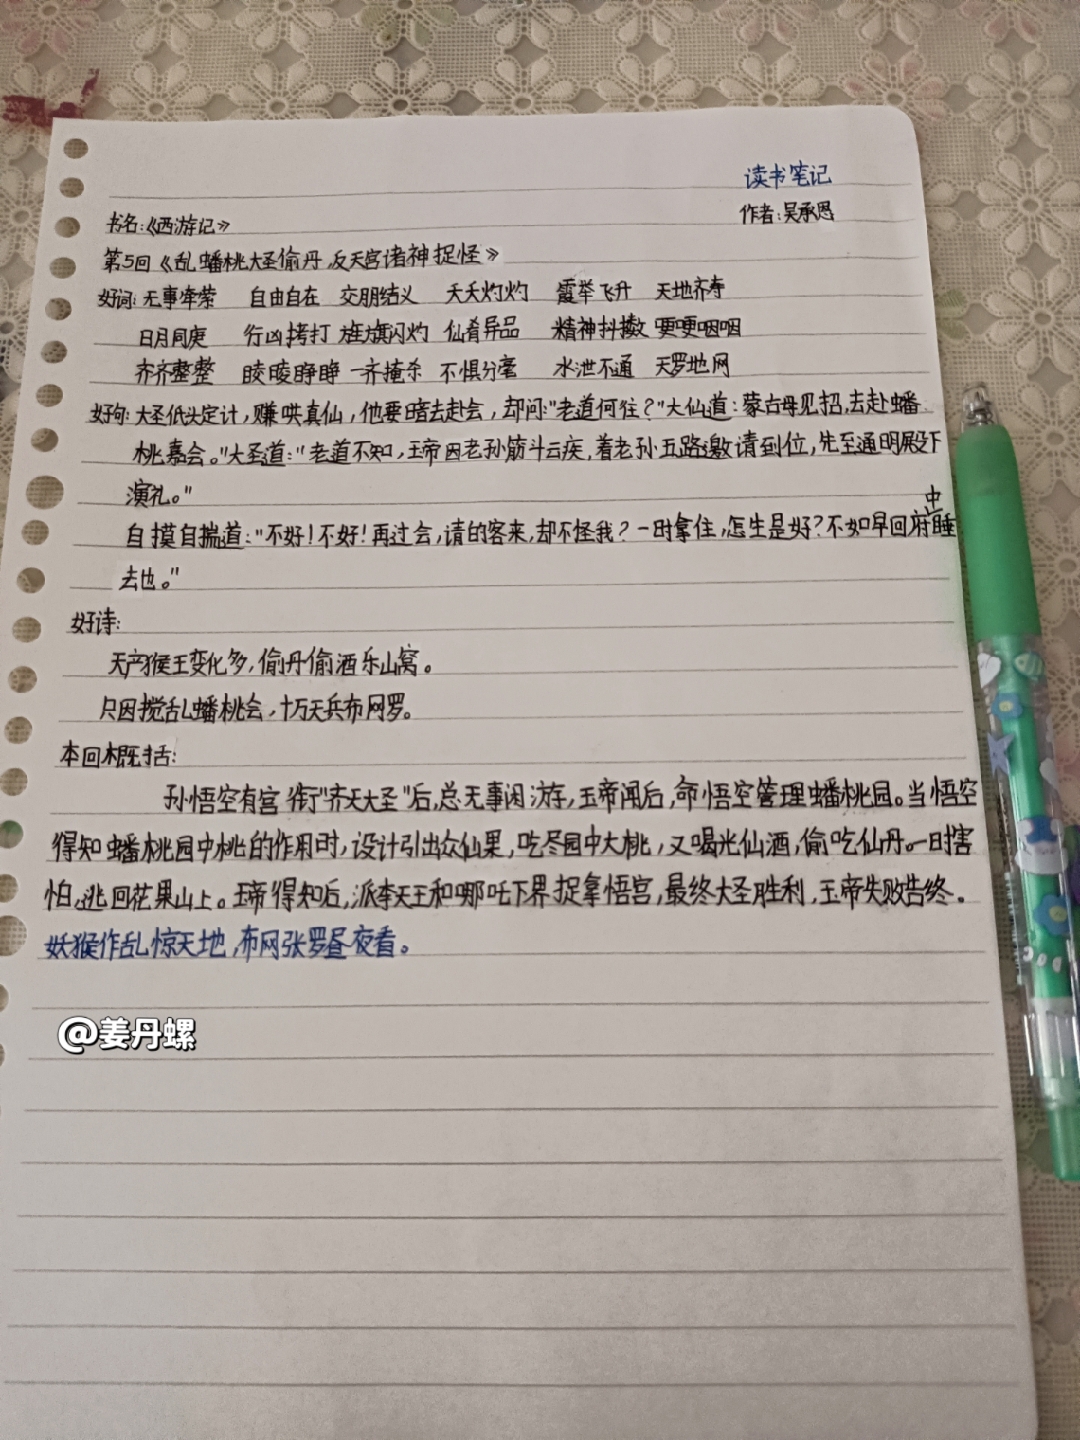 读书笔记
书名:《西游记》 作者:吴承恩
第5回《乱蟠桃大圣偷丹 反天宫诸神捉怪》
好词: 无事牵萦 自由自在 交朋结义 夭夭灼灼 霞举飞升 天地齐寿
日月同庚 行凶拷打 旌旗闪灼 仙肴异品 精神抖擞 哽哽咽咽
齐齐整整 睖睖睁睁 一齐掩杀 不惧分毫 水泄不通 天罗地网
好句: 大圣低头定计,赚哄真仙,他要暗去赴会,却问:"老道何往?"大仙道:蒙古母见招,去赴蟠
桃嘉会。"大圣道:"老道不知,玉帝因老孙筋斗云疾,着老孙五路邀请到位,先至通明殿下
演礼。"
自摸自揣道:"不好!不好!再过会,请的客来,却不怪我?一时拿住,怎生是好?不如早回府中睡
去也。"
好诗:
天产猴王变化多,偷丹偷酒乐山窝。
只因搅乱蟠桃会,十万天兵布网罗。
本回概括:
孙悟空有宫衔"齐天大圣"后,总无事闲游,玉帝闻后,命悟空管理蟠桃园。当悟空
得知蟠桃园中桃的作用时,设计引出众仙果,吃尽园中大桃,又喝光仙酒,偷吃仙丹。一时害
怕,逃回花果山上。玉帝得知后,派李天王和哪吒下界捉拿悟宫,最终大圣胜利,玉帝失败告终。
妖猴作乱惊天地,布网张罗昼夜看。
@姜丹螺